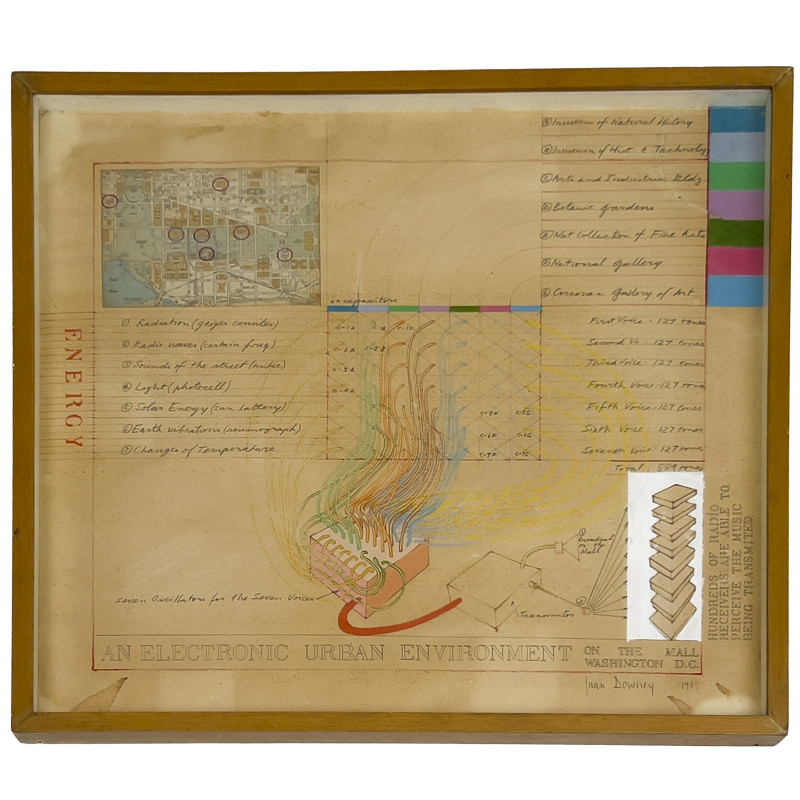 Museum of Natural History
Museum of Hist & Technology
Arts and Industries Bldg
Botanic gardens
Nat Collection of Fine Arts
National gallery
Corcoran gallery of Art
49 capacitors
① Radiation (geiger counter)
② Radio waves (certain freq)
③ Sounds of the street (mike)
④ Light (photocell)
⑤ Solar Energy (sun battery)
⑥ Earth vibrations (seismograph)
⑦ Changes of Temperature
ENERGY
C-1A
C-2A C-2B
C-3A
C-4A
First Voice: 127 tones
Second Vc: 127 tones
Third voice: 127 tones
Fourth Voice: 127 tones
Fifth Voice: 127 tones
Sixth Voice: 127 tones
Seventh Voice: 127 tones
Total: 889 tones
Seven Oscillators for the Seven Voices
Transmitter
① Broadcast
on the
Mall
②
HUNDREDS OF RADIO
RECEIVERS ARE ABLE TO
PERCEIVE THE MUSIC
BEING TRANSMITED
AN ELECTRONIC URBAN ENVIRONMENT
ON THE MALL
WASHINGTON D.C.
Juan Downey 1969